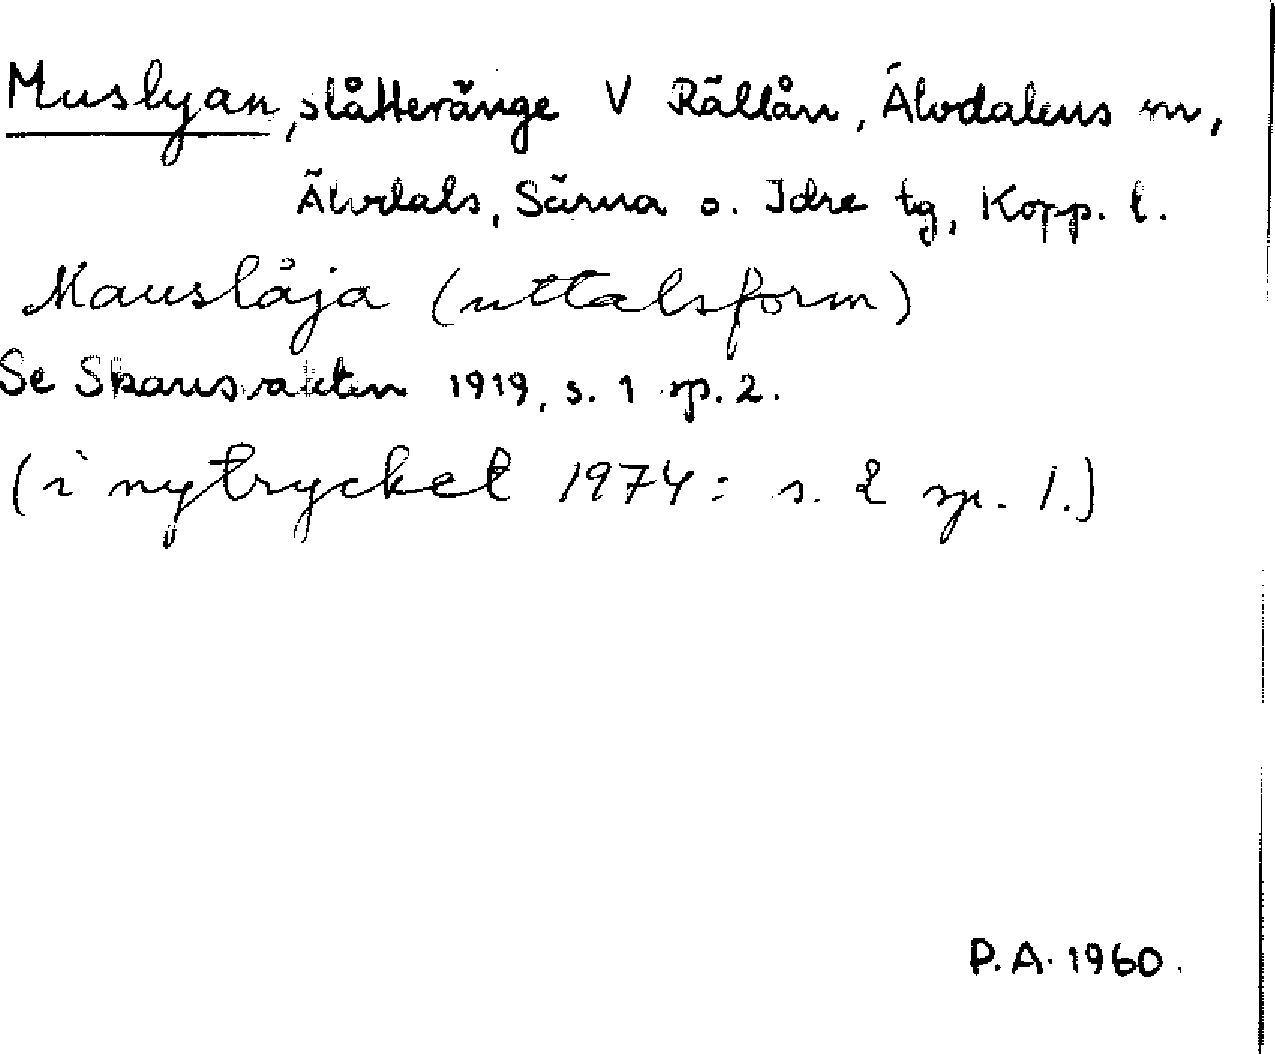 Muslyan, slåtteränge V Rällån, Älvdalens sn,
Älvdals, Särna o. Idre tg, Kopp. l.
Mauslåja (uttalsform)
Se Skansvakten 1919, s. 1 sp. 2.
(i nytrycket 1974: s. 2 sp. 1.)
P.A. 1960.